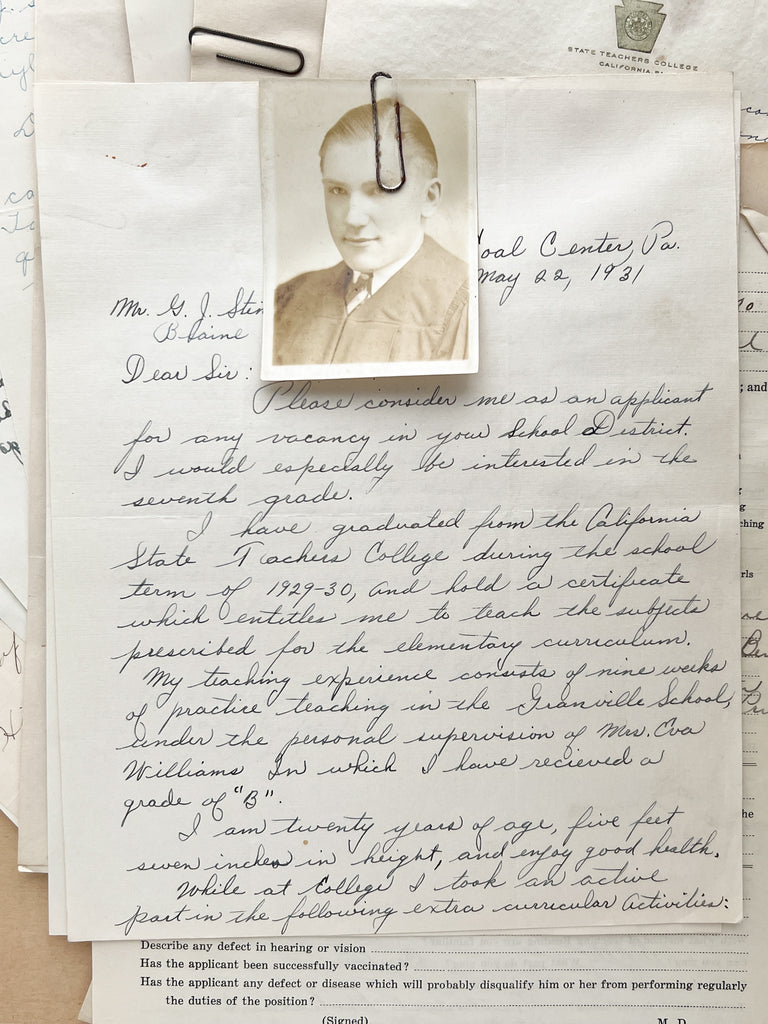 STATE TEACHERS COLLEGE
CALIFORNIA, PA.
oal Center, Pa.
May 22, 1931
Mr. G. J. Stin
Blaine
Dear Sir:
Please consider me as an applicant
for any vacancy in your School District.
I would especially be interested in the
seventh grade.
I have graduated from the California
State Teachers College during the school
term of 1929-30, and hold a certificate
which entitles me to teach the subjects
prescribed for the elementary curriculum.
My teaching experience consists of nine weeks
of practice teaching in the Granville School,
under the personal supervision of Mrs. Eva
Williams In which I have recieved a
grade of "B".
I am twenty years of age, five feet
seven inches in height, and enjoy good health.
While at College I took an active
part in the following extra curricular Activities:
; and
ching
rls
he
Describe any defect in hearing or vision
Has the applicant been successfully vaccinated?
Has the applicant any defect or disease which will probably disqualify him or her from performing regularly
the duties of the position?
(Signed) M. D.